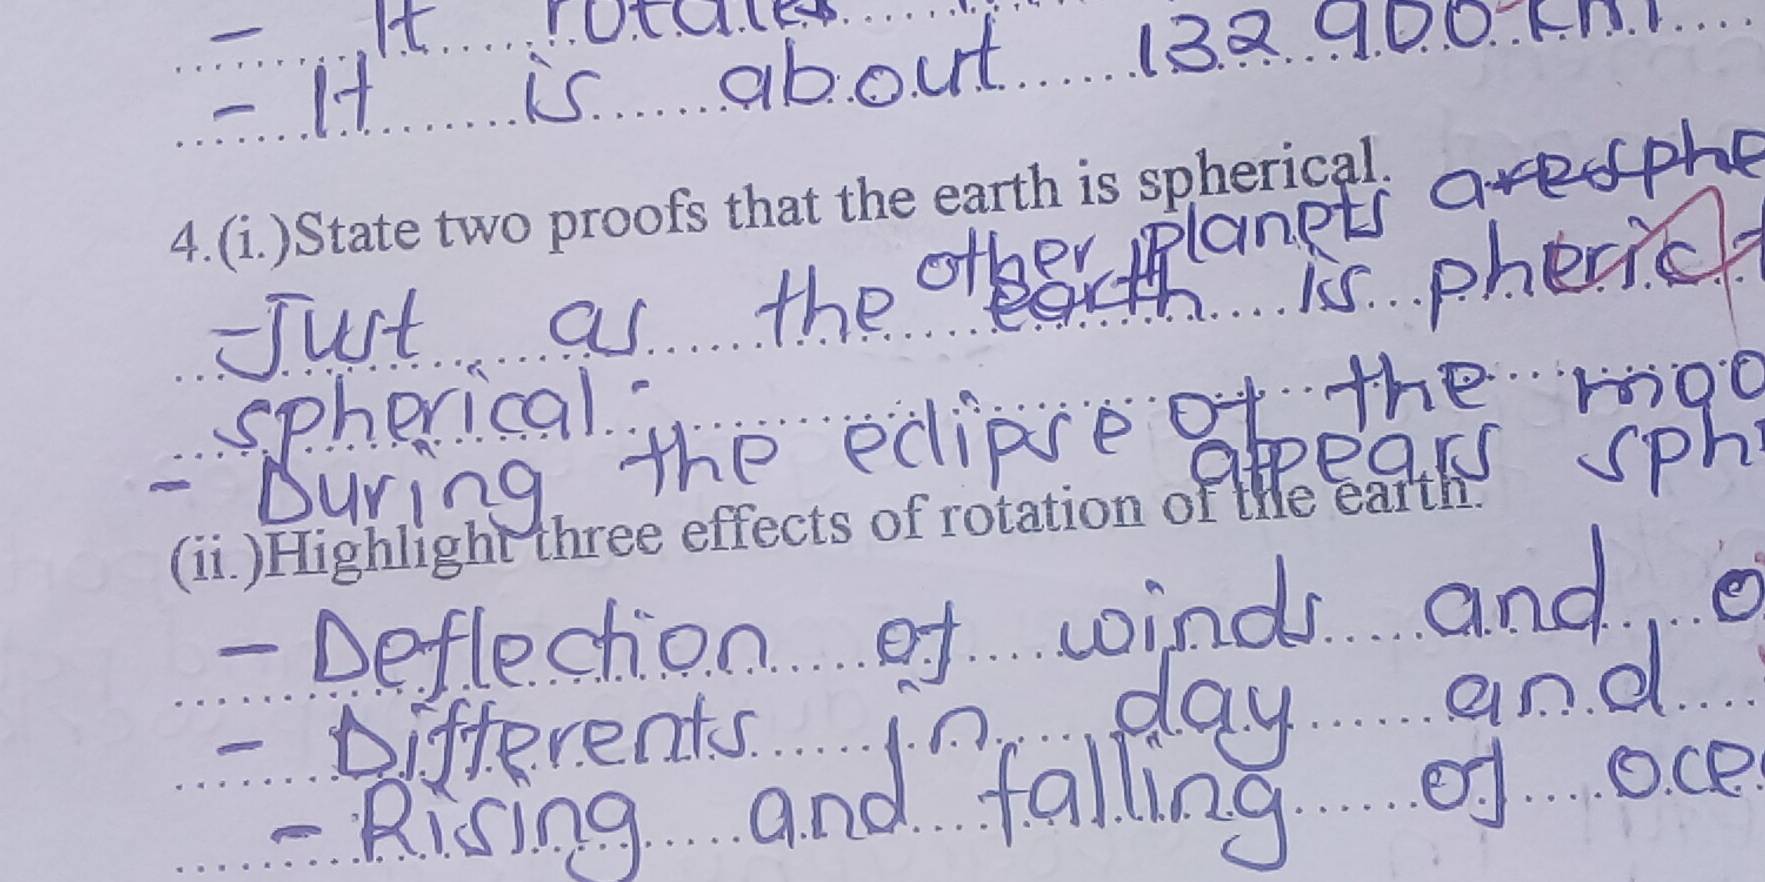 - It rotates
- It is about 132 900 km
4.(i.)State two proofs that the earth is spherical.
other planets are sphe
- Just as the earth is pheric
spherical.
- During the eclipse of the moo
appears sph
(ii.)Highlight three effects of rotation of the earth.
- Deflection of winds and o
- Differents in day and
- Rising and falling of oce